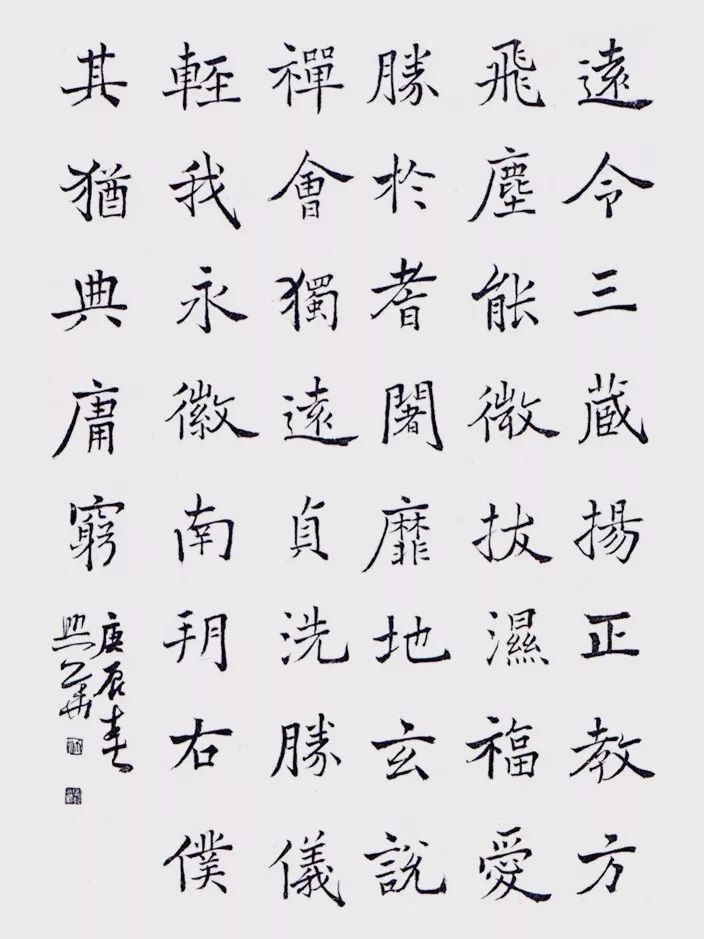 遠令三蔵揚正教方
飛塵能微拔濕福愛
勝於耆闍靡地玄說
禪會獨遠貞洗勝儀
輊我永徽南玥右僕
其猶典庸窮
庚辰春